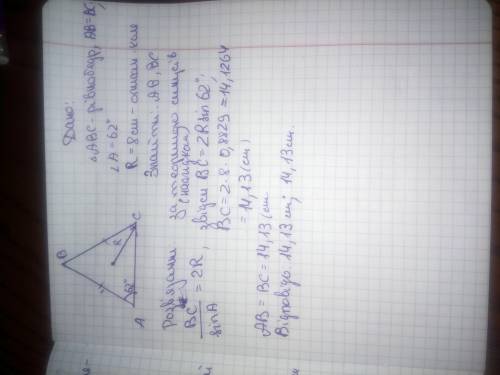 B
R
62°
A
C
Дано:
△ABC - рівнобедр, AB=BC,
∠A = 62°
R = 8см - описан. коле
Знайти: AB, BC
Розв'язання
за теоремою синусів
(наслідком)
BC/sinA = 2R, звідси BC = 2R sin 62°,
BC = 2·8·0,8829 = 14,1264
= 14,13 (см)
AB = BC = 14,13 (см
Відповідь 14,13 см; 14,13 см.